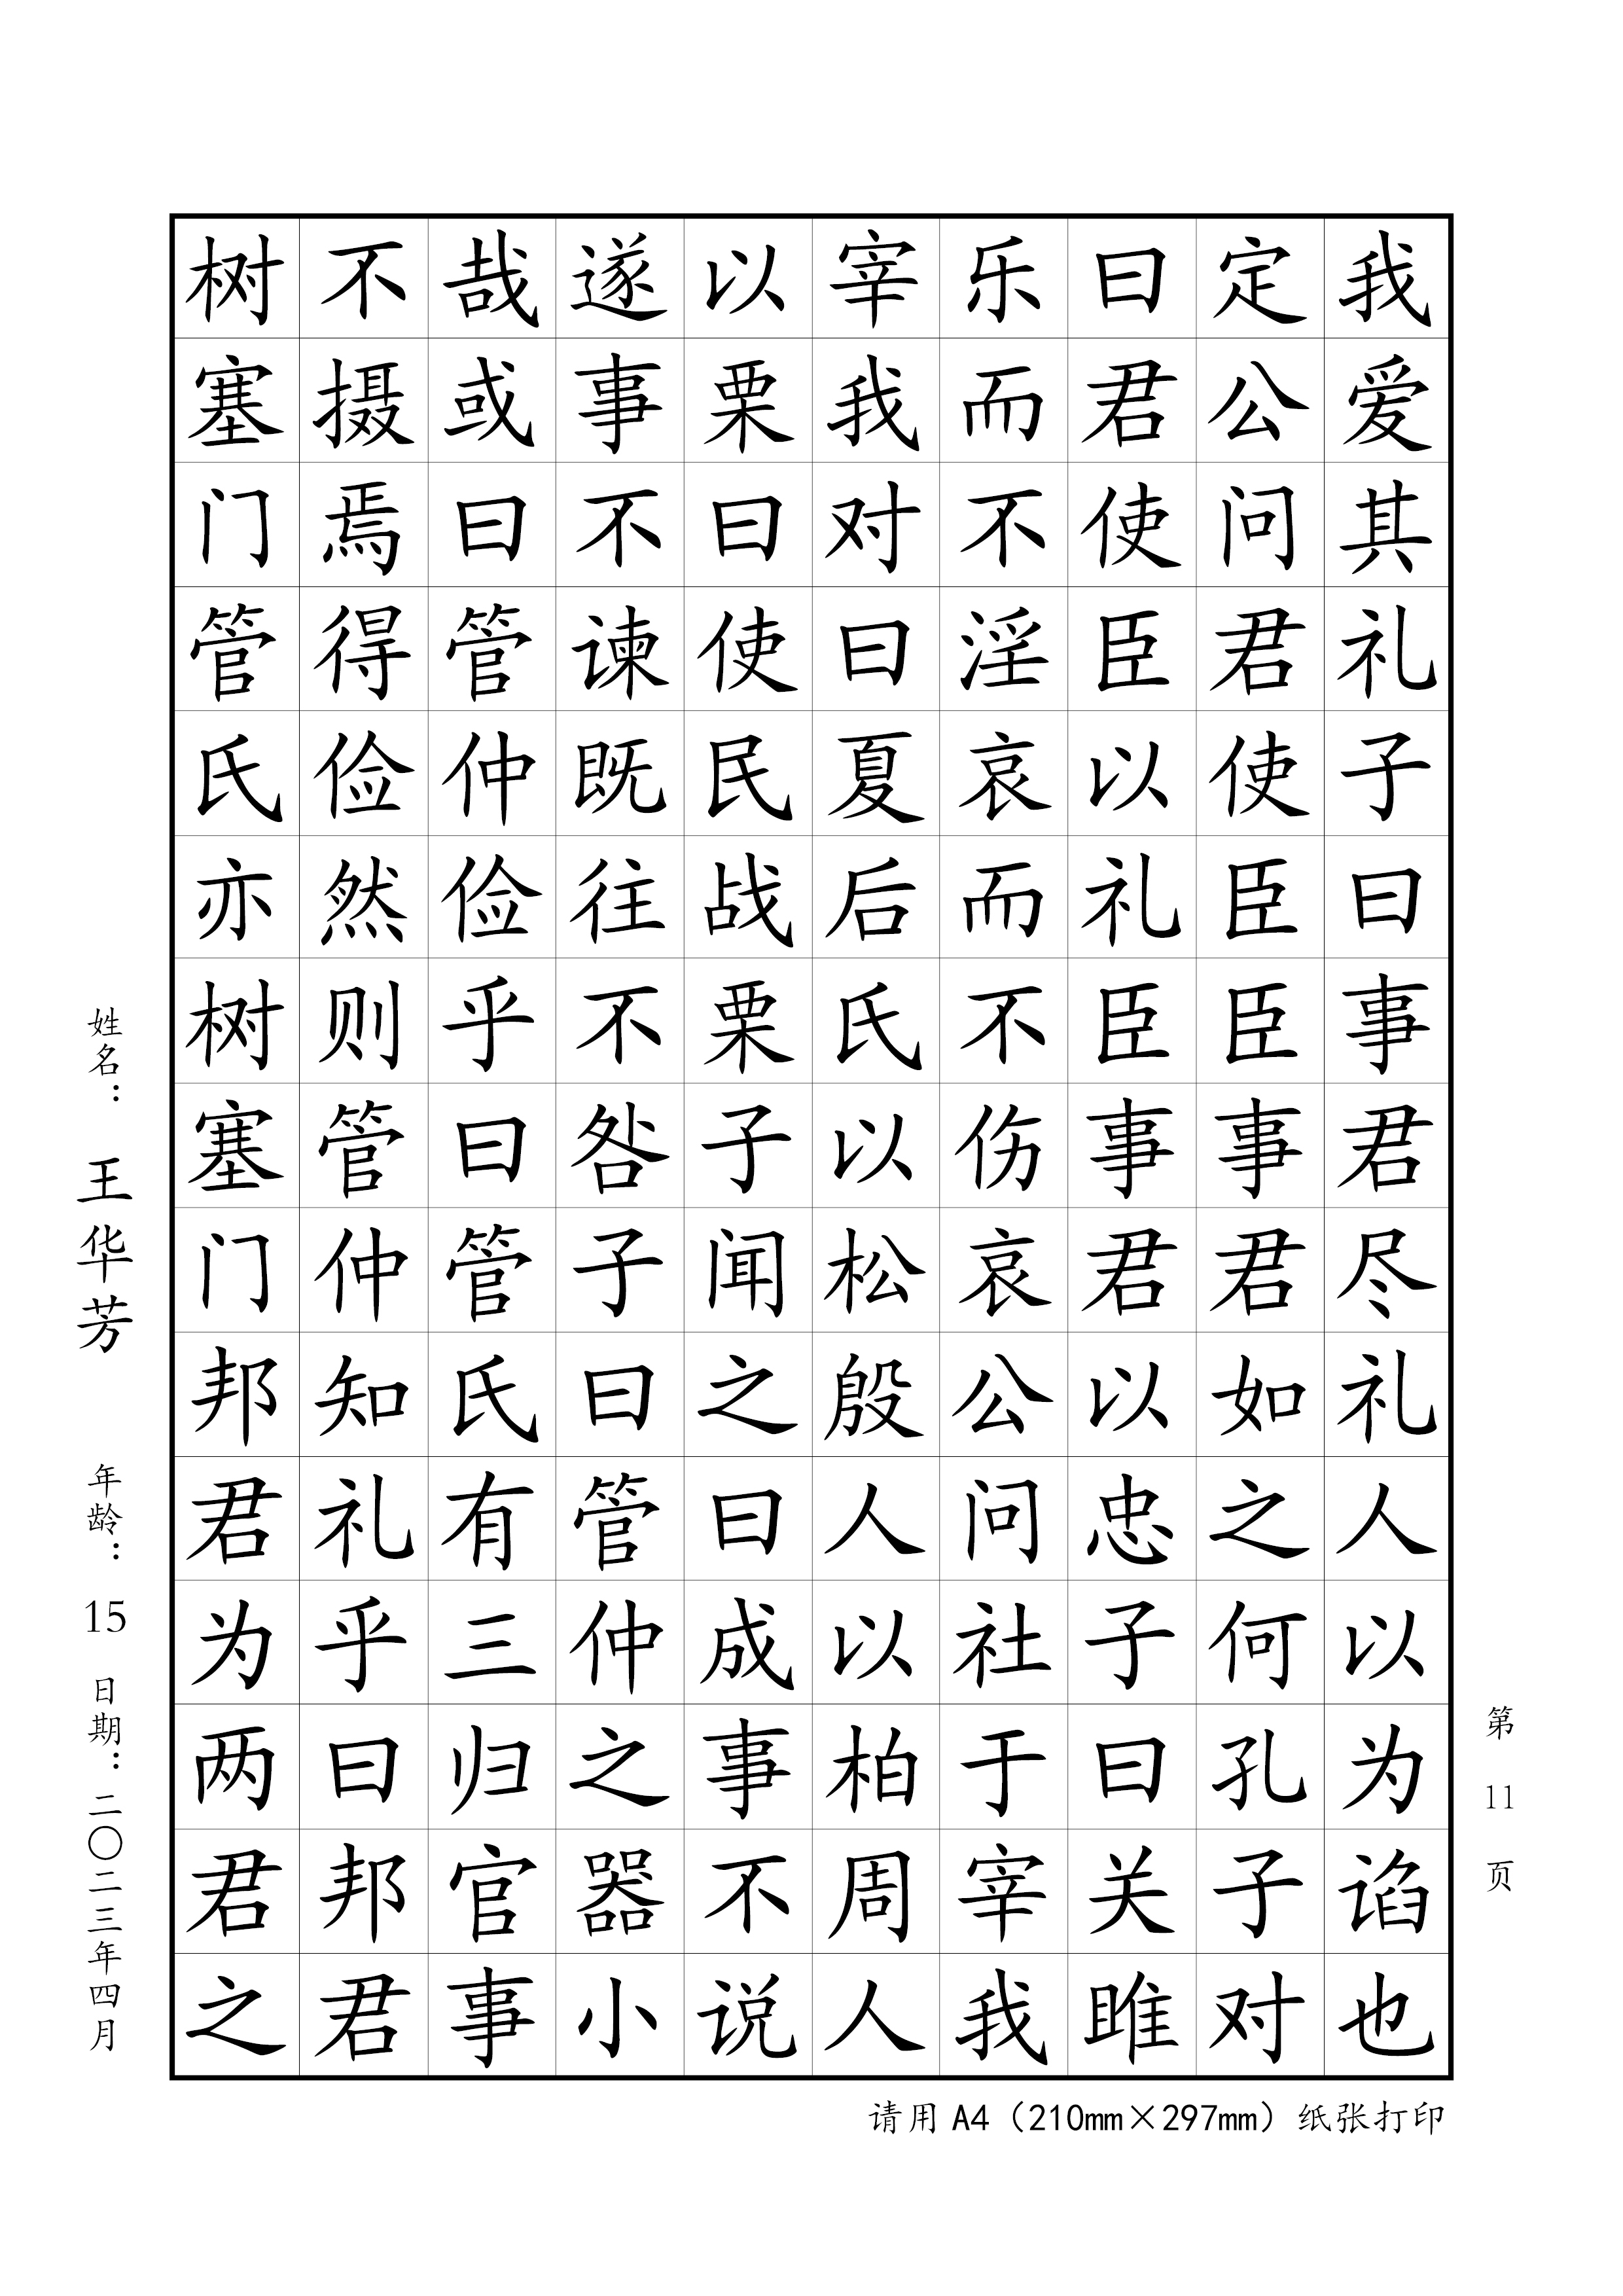 我爱其礼子曰事君尽礼人以为谄也
定公问君使臣臣事君如之何孔子对
曰君使臣以礼臣事君以忠子曰关雎
乐而不淫哀而不伤哀公问社于宰我
宰我对曰夏后氏以松殷人以柏周人
以栗曰使民战栗子闻之曰成事不说
遂事不谏既往不咎子曰管仲之器小
哉或曰管仲俭乎曰管氏有三归官事
不摄焉得俭然则管仲知礼乎曰邦君
树塞门管氏亦树塞门邦君为两君之
第 11 页
姓名： 王华芳 年龄： 15 日期：二〇二三年四月
请用 A4（210mm×297mm）纸张打印